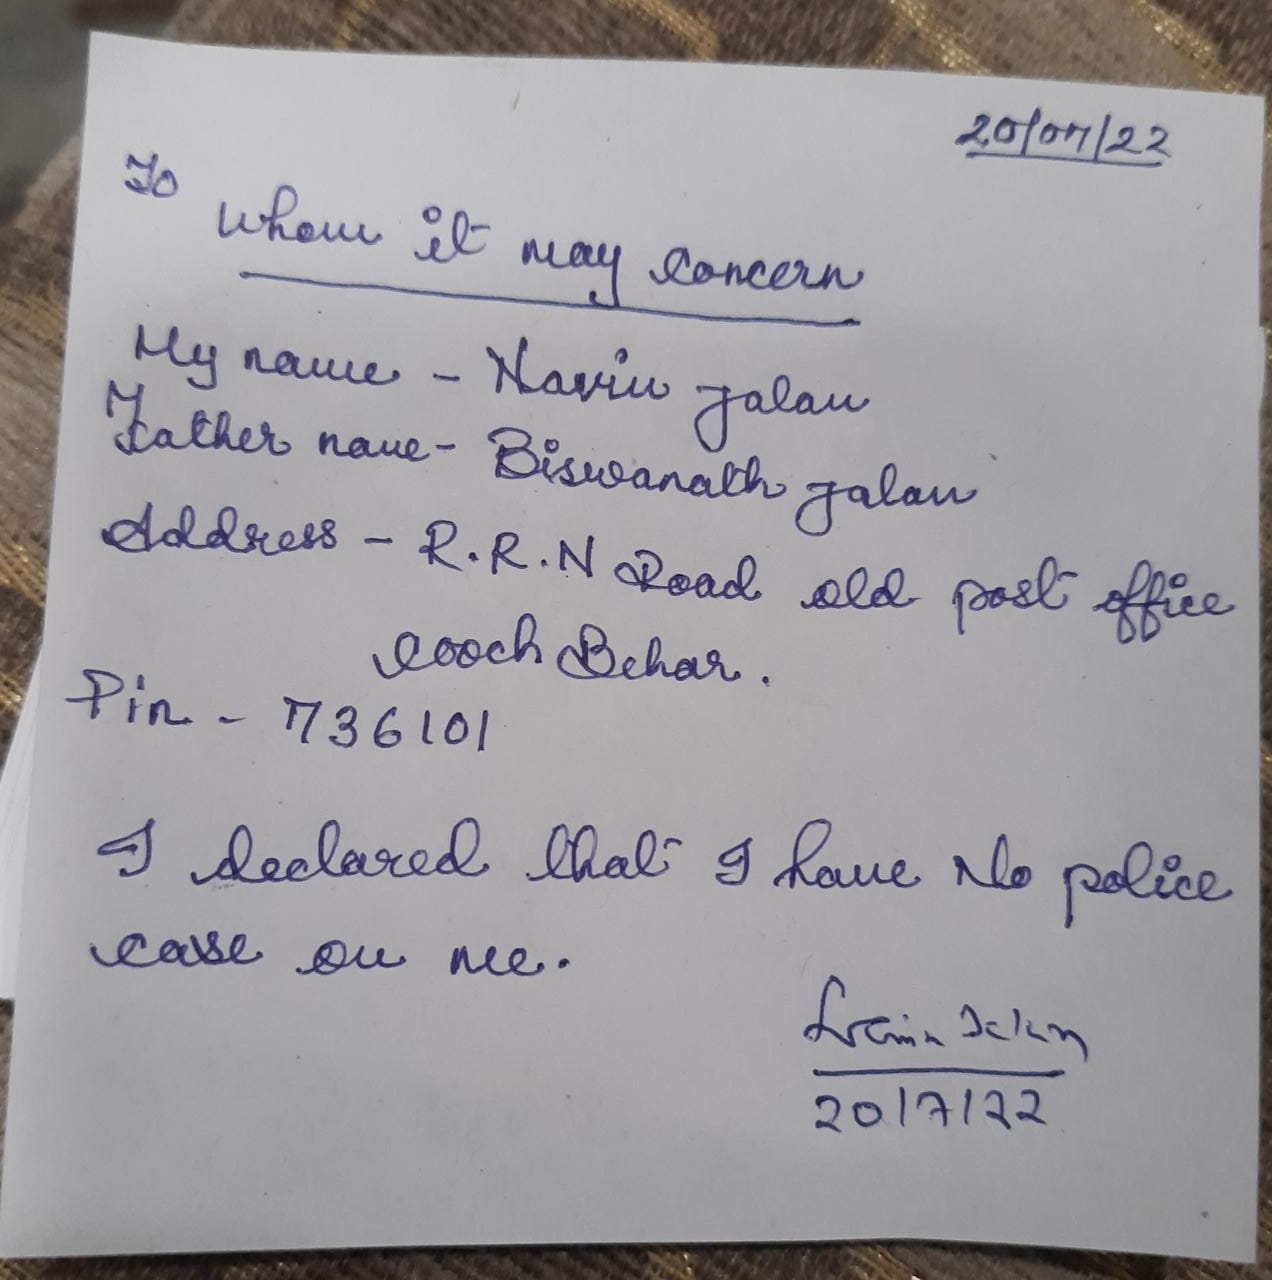 20/07/22
To
Whom it may concern
My name - Navin Jalan
Father name - Biswanath Jalan
Address - R.R.N Road old post office
Cooch Behar.
Pin - 736101
I declared that I have No police
case on me.
20/7/22